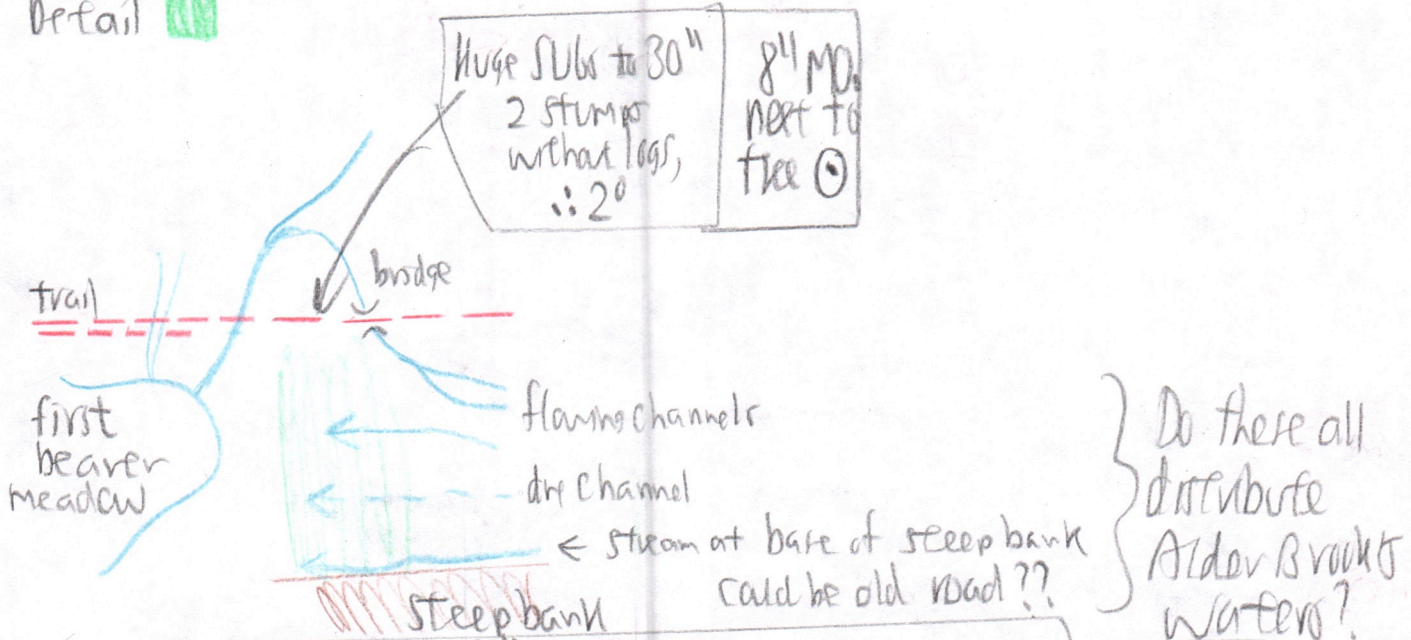 Detail
Huge SUGs to 30"
2 stumps
without logs,
∴ 2°
8" MD.
next to
tree ⊙
bridge
trail
first
beaver
meadow
flowing channels
dry channel
← stream at base of steep bank
could be old road??
steep bank
Do these all
distribute
Alder Brook's
waters?